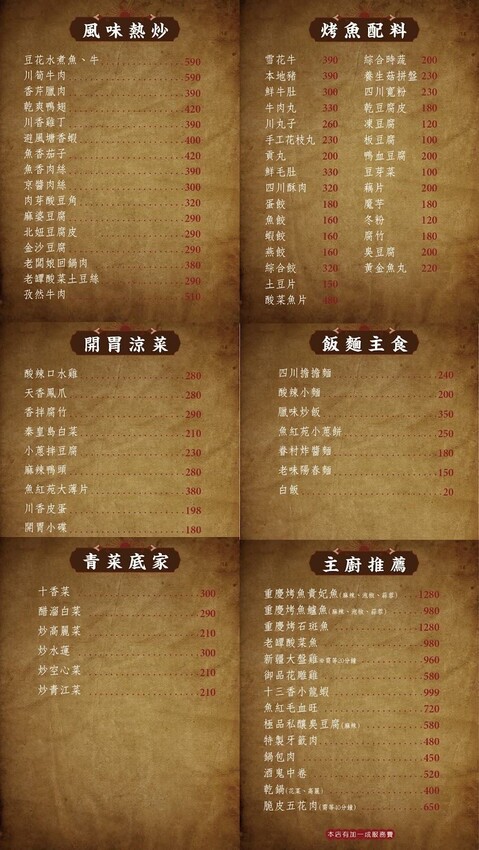 風味熱炒
豆花水煮魚、牛 590
川筍牛肉 590
香芹臘肉 390
乾爽鴨翅 420
川香雞丁 390
避風塘香蝦 400
魚香茄子 420
魚香肉絲 390
京醬肉絲 300
肉芽酸豆角 320
麻婆豆腐 290
北妞豆腐皮 290
金沙豆腐 290
老闆娘回鍋肉 380
老罈酸菜土豆絲 290
孜然牛肉 510
烤魚配料
雪花牛 390
本地豬 390
鮮牛肚 300
牛肉丸 330
川丸子 260
手工花枝丸 230
貢丸 200
鮮毛肚 330
四川酥肉 320
蛋餃 180
魚餃 160
蝦餃 160
燕餃 160
綜合餃 320
土豆片 150
酸菜魚片 480
綜合時蔬 200
養生菇拼盤 230
四川寬粉 230
乾豆腐皮 180
凍豆腐 120
板豆腐 100
鴨血豆腐 200
豆芽菜 100
藕片 200
魔芋 180
冬粉 120
腐竹 180
臭豆腐 200
黃金魚丸 220
開胃涼菜
酸辣口水雞 280
天香鳳爪 280
香拌腐竹 290
秦皇島白菜 210
小蔥拌豆腐 230
麻辣鴨頭 280
魚紅苑大薄片 380
川香皮蛋 198
開胃小碟 180
飯麵主食
四川擔擔麵 240
酸辣小麵 200
臘味炒飯 350
魚紅苑小蔥餅 250
眷村炸醬麵 180
老味陽春麵 150
白飯 20
青菜底家
十香菜 300
醋溜白菜 290
炒高麗菜 210
炒水蓮 300
炒空心菜 210
炒青江菜 210
主廚推薦
重慶烤魚貴妃魚(麻辣、泡椒、蒜蓉) 1280
重慶烤魚鱸魚(麻辣、泡椒、蒜蓉) 980
重慶烤石斑魚 1280
老罈酸菜魚 980
新疆大盤雞※需等20分鐘 960
御品花雕雞 580
十三香小龍蝦 999
魚紅毛血旺 720
極品私釀臭豆腐(麻辣) 580
特製牙籤肉 480
鍋包肉 450
酒鬼中卷 520
乾鍋(花菜、高麗) 400
脆皮五花肉(需等40分鐘) 650
本店有加一成服務費